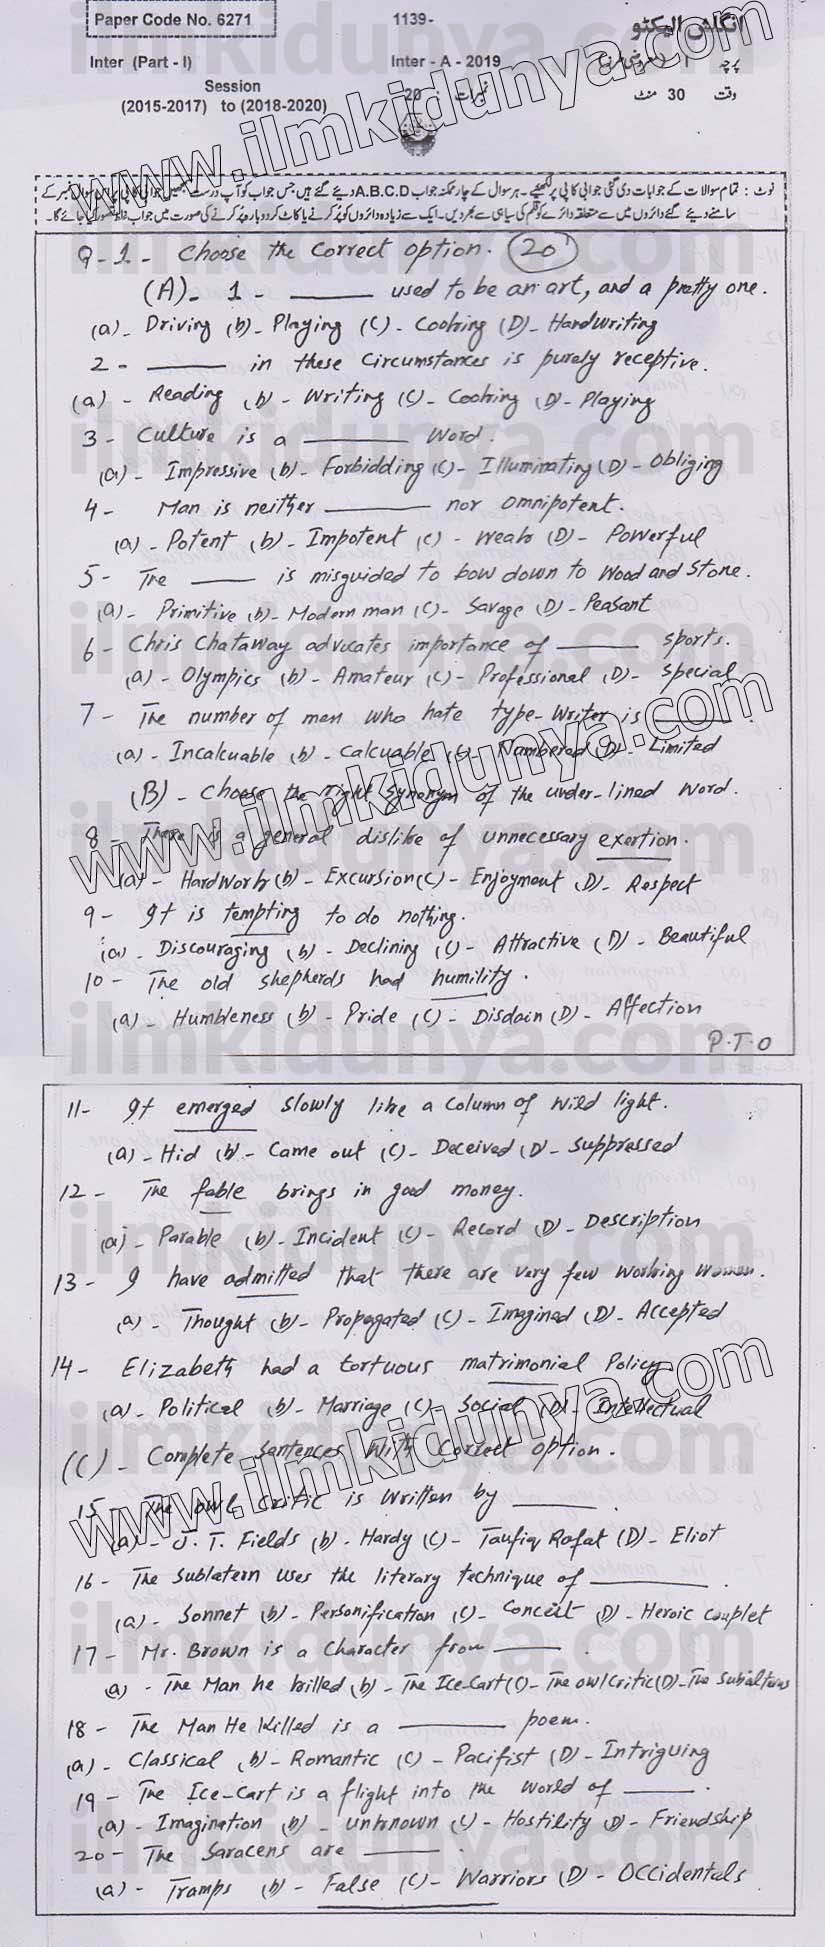 Paper Code No. 6271
1139-
انگلش الیکٹو
Inter (Part - I)
Inter - A - 2019
پرچہ I (معروضی طرز)
Session
(2015-2017) to (2018-2020)
نمبرات : 20
وقت 30 منٹ
نوٹ : تمام سوالات کے جوابات دی گئی جوابی کاپی پر لکھئیے ۔ ہر سوال کے چار ممکنہ جواب A.B.C.D دیئے گئے ہیں جس جواب کو آپ درست سمجھیں جوابی کاپی پر اس سوال نمبر کے
سامنے دیئے گئے دائروں میں سے متعلقہ دائرے کو قلم کی سیاہی سے بھر دیں۔ ایک سے زیادہ دائروں کو پُر کرنے یا کاٹ کر دوبارہ پُر کرنے کی صورت میں جواب غلط تصور کیا جائے گا۔
Q-1- Choose the Correct option. 20
(A)- 1 - ______ used to be an art, and a pretty one.
(a)- Driving (b)- Playing (C)- Cooking (D)- Handwriting
2 - ______ in these circumstances is purely receptive.
(a) - Reading (b) - Writing (C)- Cooking (D- Playing
3 - Culture is a ______ word.
(a)- Impressive (b)- Forbidding (C)- Illuminating (D)- Obliging
4 - Man is neither ______ nor omnipotent.
(a)- Potent (b)- Impotent (C) - Weak (D)- Powerful
5 - The ______ is misguided to bow down to Wood and Stone.
(a)- Primitive (b)- Modern man (C)- Savage (D)- Peasant
6 - Chris Chataway advocates importance of ______ sports.
(a)- Olympics (b)- Amateur (C)- Professional (D)- Special
7 - The number of men who hate type-Writer is ______
(a)- Incalcuable (b)- Calcuable (C)- Nambered (D)- Limited
(B)- Choose the right Synonym of the under-lined word.
8 - There is a general dislike of unnecessary exertion.
(a)- Hardwork (b)- Excursion (C)- Enjoyment (D)- Respect
9 - It is tempting to do nothing.
(a)- Discouraging (b)- Declining (C)- Attractive (D)- Beautiful
10 - The old shepherds had humility.
(a)- Humbleness (b)- Pride (C)- Disdain (D)- Affection
P.T.O
11- It emerged slowly like a column of wild light.
(a)- Hid (b)- Came out (C)- Deceived (D- Suppressed
12 - The fable brings in good money.
(a)- Parable (b)- Incident (C)- Record (D)- Description
13 - I have admitted that there are very few working women.
(a)- Thought (b)- Propagated (C)- Imagined (D)- Accepted
14- Elizabeth had a tortuous matrimonial Policy
(a)- Political (b)- Marriage (C)- Social (D)- Intellectual
(C)- Complete Sentences With Correct option.
15- The owl critic is written by ______
(a)- J. T. Fields (b)- Hardy (C)- Taufiq Rafat (D)- Eliot
16- The Sublatern uses the literary technique of ______.
(a)- Sonnet (b)- Personification (C)- Conceit (D)- Heroic Couplet
17 - Mr. Brown is a character from ______.
(a) - The Man he killed (b)- The Ice-Cart (C)- The owl critic (D)- The Subalterns
18 - The Man He Killed is a ______ poem.
(a)- Classical (b)- Romantic (C)- Pacifist (D)- Intriguing
19- The Ice-Cart is a flight into the world of ______.
(a)- Imagination (b) - unknown (C)- Hostility (D)- Friendship
20- The Saracens are ______.
(a)- Tramps (b)- False (C)- Warriors (D)- Occidentals
www.ilmkidunya.com